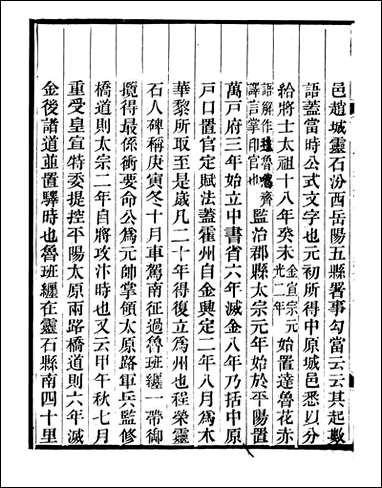 邑趙城靈石汾西岳陽五縣署事勾當云云其起數
語蓋當時公式文字也元初所得中原城邑悉以分
給將士太祖十八年癸未金宣宗元光二年始置達魯花赤
語解作達嚕噶齊譯言掌印官也監治郡縣太宗元年始於平陽置
萬戶府三年始立中書省六年滅金八年乃括中原
戶口置官定賦法蓋霍州自金興定二年八月為木
華黎所取至是歲凡二十年得復立為州也程榮靈
石人碑稱庚寅冬十月車駕南征過魯班纏一帶御
攬得最係衝要命公為元帥掌領太原路軍兵監修
橋道則太宗二年自將攻汴時也又云甲午秋七月
重受皇宣特委提控平陽太原兩路橋道則六年滅
金後諸道並置驛時也魯班纏在靈石縣南四十里